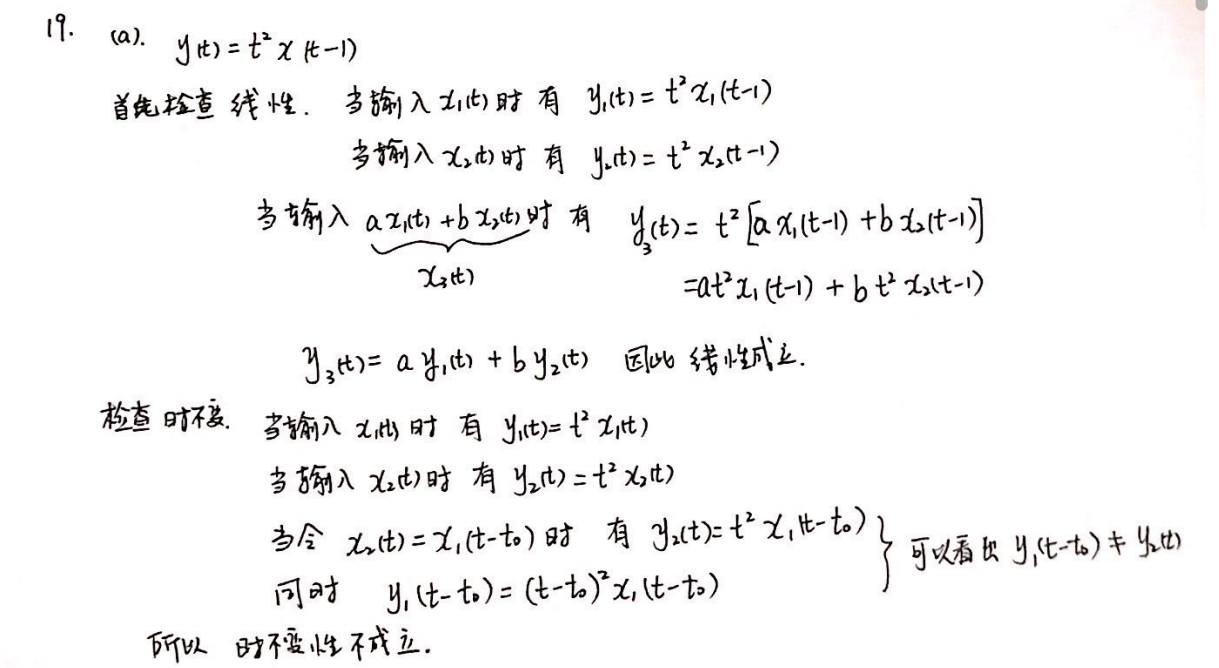 19. (a). y(t) = t² x(t-1)
首先检查线性. 当输入 x₁(t) 时 有 y₁(t) = t² x₁(t-1)
当输入 x₂(t) 时 有 y₂(t) = t² x₂(t-1)
当输入 a x₁(t) + b x₂(t) 时 有 y₃(t) = t² [a x₁(t-1) + b x₂(t-1)]
x₃(t) = at² x₁(t-1) + b t² x₂(t-1)
y₃(t) = a y₁(t) + b y₂(t) 因此 线性成立.
检查 时不变. 当输入 x₁(t) 时 有 y₁(t) = t² x₁(t)
当输入 x₂(t) 时 有 y₂(t) = t² x₂(t)
当令 x₂(t) = x₁(t-t₀) 时 有 y₂(t) = t² x₁(t-t₀) } 可以看出 y₁(t-t₀) ≠ y₂(t)
同时 y₁(t-t₀) = (t-t₀)² x₁(t-t₀)
所以 时不变性不成立.